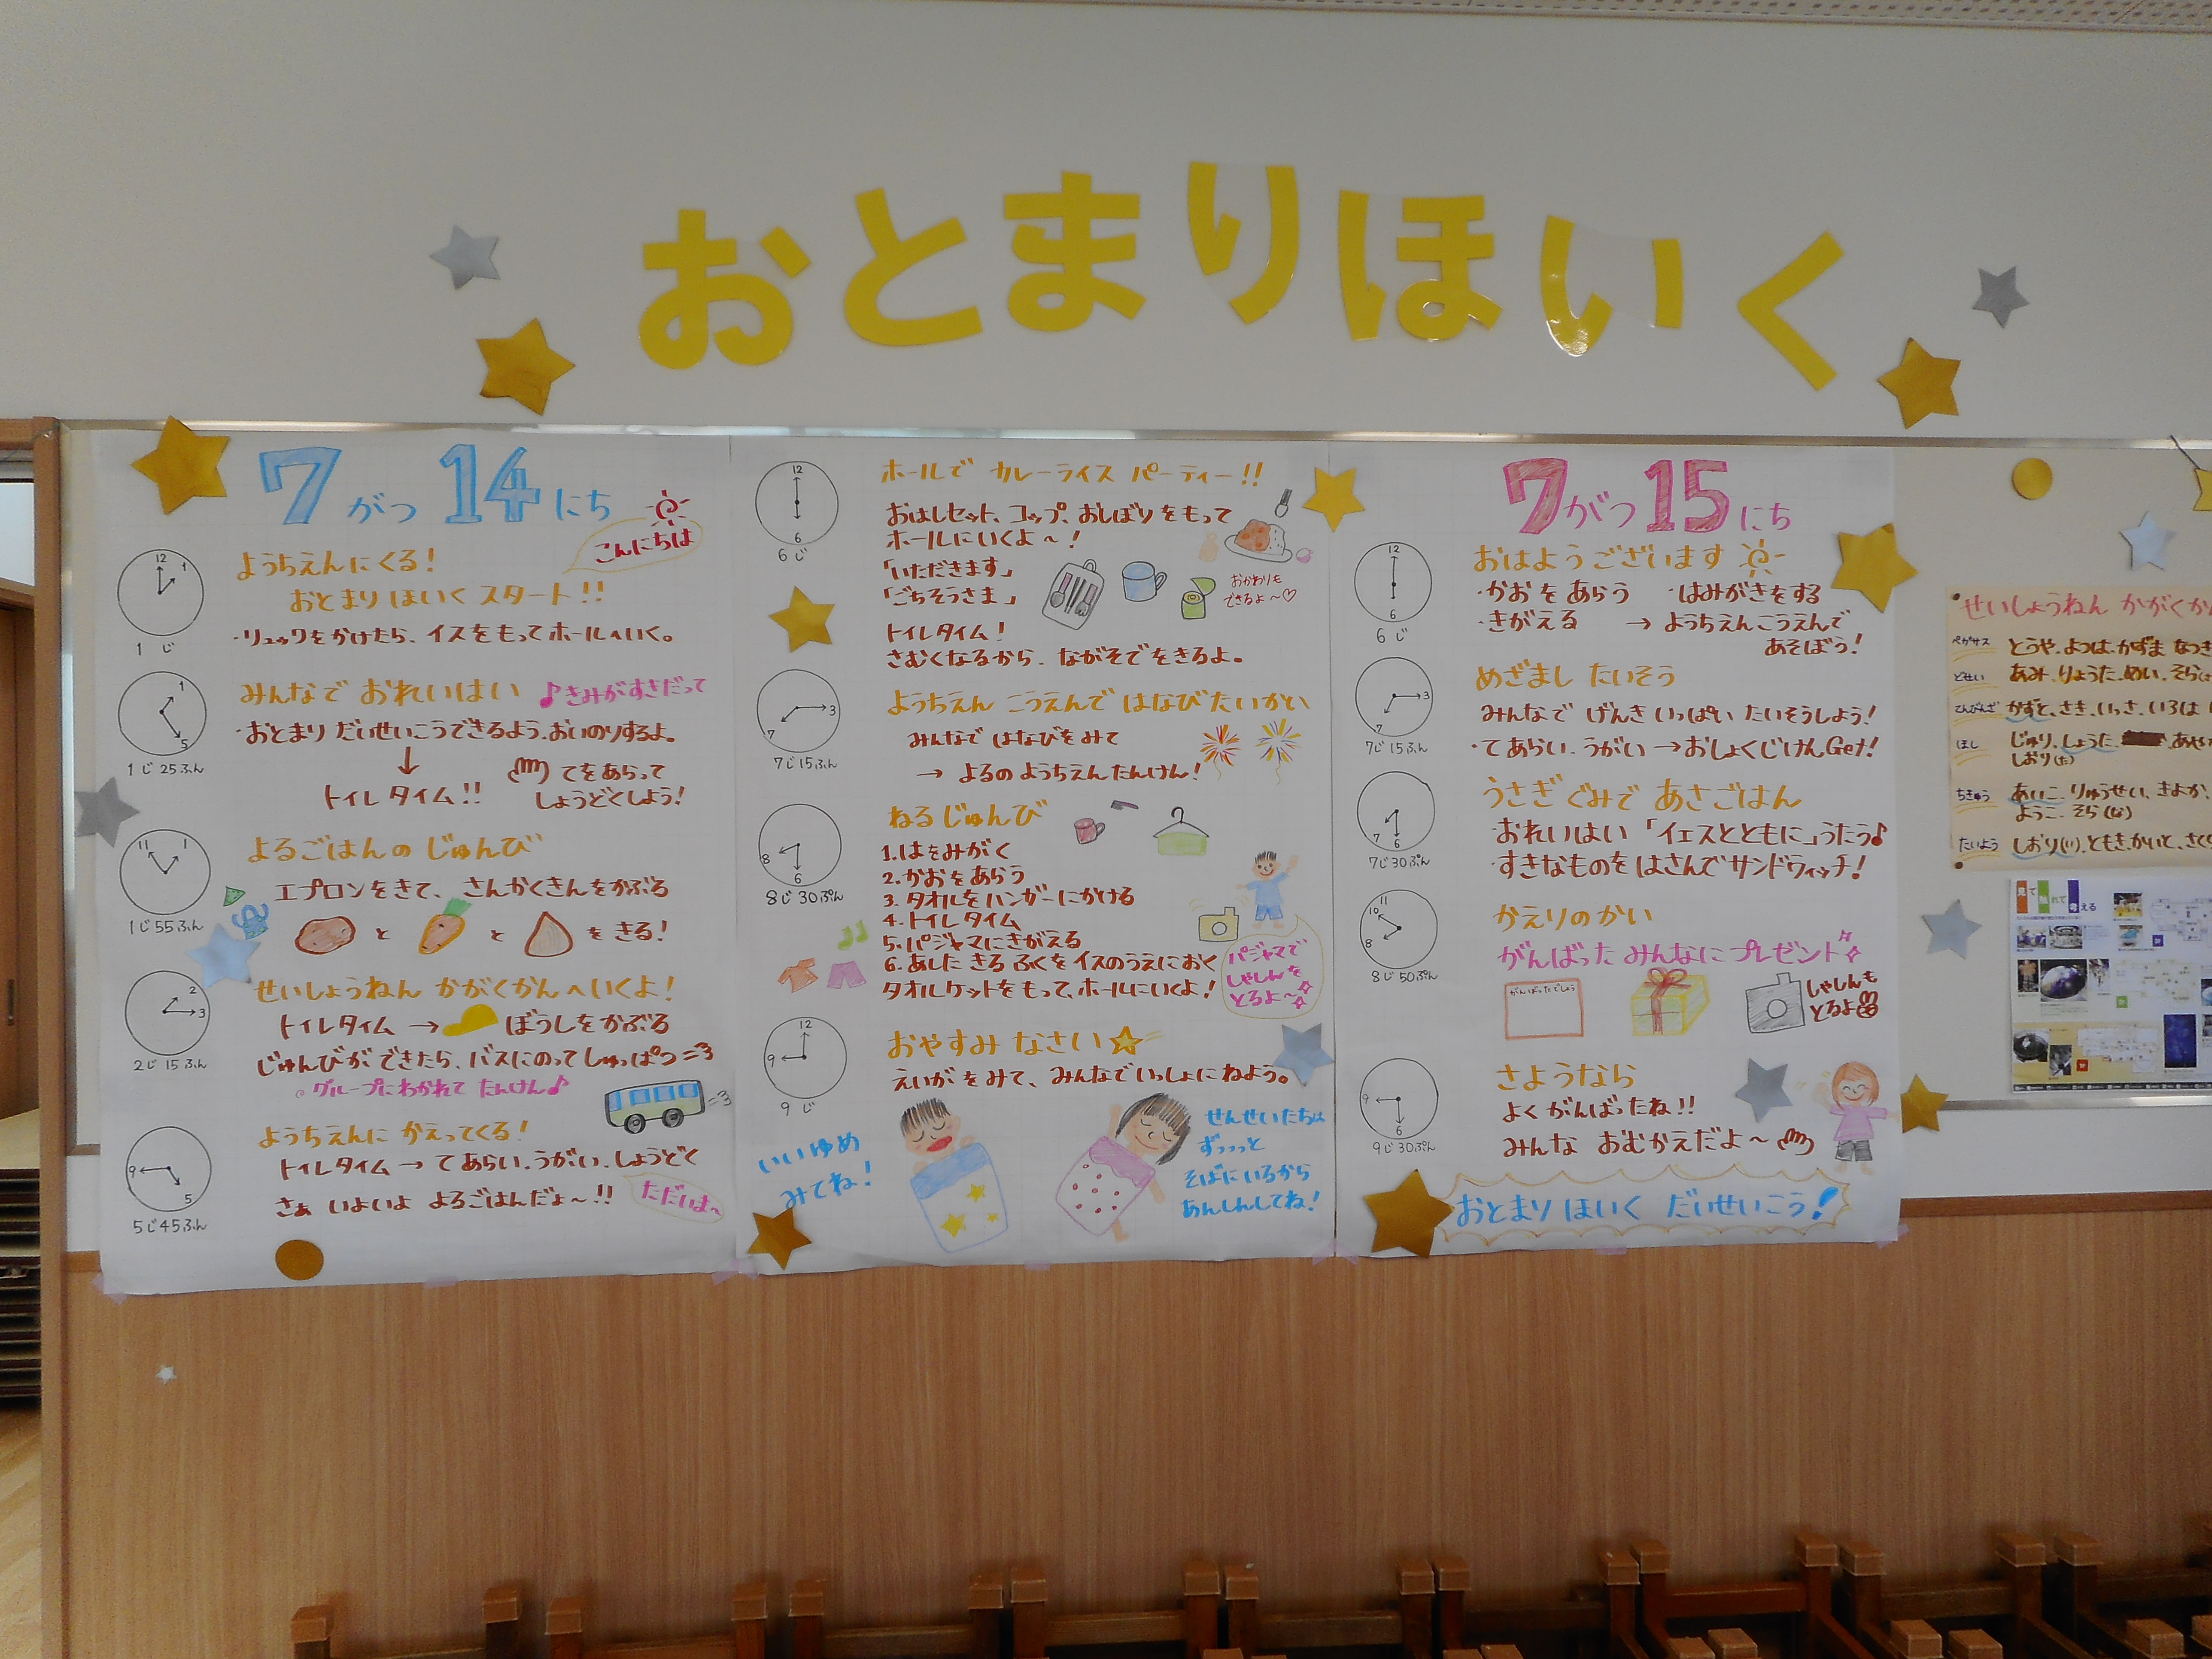 おとまりほいく
7がつ14にち
こんにちは
1じ
ようちえんにくる!
おとまりほいくスタート!!
・リュックをかけたら、イスをもってホールへいく。
1じ25ふん
みんなで おれいはい ♪きみがすきだって
・おとまり だいせいこうできるよう、おいのりするよ。
↓
トイレタイム!!
てをあらって
しょうどくしよう!
1じ55ふん
よるごはんの じゅんび
エプロンをきて、さんかくきんをかぶる
と と をきる!
2じ15ふん
せいしょうねん かがくかんへいくよ!
トイレタイム → ぼうしをかぶる
じゅんびが できたら、バスにのって しゅっぱつ
グループにわかれて たんけん♪
5じ45ふん
ようちえんに かえってくる!
トイレタイム → てあらい、うがい、しょうどく
さぁ いよいよ よるごはんだよ～!!
ただいま～
6じ
ホールで カレーライス パーティー!!
おはしセット、コップ、おしぼりをもって
ホールにいくよ～!
「いただきます」
「ごちそうさま」
おかわりも
できるよ～♡
トイレタイム!
さむくなるから、ながそでをきるよ。
7じ15ふん
ようちえん こうえんで はなびたいかい
みんなで はなびをみて
→ よるの ようちえんたんけん!
8じ30ぷん
ねる じゅんび
1.はをみがく
2.かおをあらう
3.タオルをハンガーにかける
4.トイレタイム
5.パジャマにきがえる
6.あした きる ふくを イスのうえにおく
タオルケットをもって、ホールにいくよ!
パジャマで
しゃしんを
とるよ～
9じ
おやすみ なさい☆
えいがをみて、みんなでいっしょにねよう。
いいゆめ
みてね!
せんせいたちは
ずっっっと
そばにいるから
あんしんしてね!
7がつ15にち
6じ
おはよう ございます
・かおをあらう ・はみがきをする
・きがえる → ようちえんこうえんで
あそぼう!
7じ15ふん
めざまし たいそう
みんなで げんき いっぱい たいそうしよう!
・てあらい、うがい →おしょくじけんGet!
7じ30ぷん
うさぎぐみで あさごはん
おれいはい「イエスとともに」うたう♪
すきなものをはさんで サンドウィッチ!
8じ50ぷん
かえりのかい
がんばった みんなに プレゼント
がんばったでしょう
しゃしんも
とるよ
9じ30ぷん
さようなら
よく がんばったね!!
みんな おむかえだよ～
おとまり ほいく だいせいこう!
せいしょうねん かがくか
ペガサス とうや、よつは、かずま なつき
どせい あみ、りょうた、めい、そら
てんびんざ かずと、さき、いっさ、いろは
ほし じゅり、しょうた、 あや
しおり(た)
ちきゅう あいこ、りゅうせい、きよか、
ようこ、そら(な)
たいよう しおり(い)、ともき、かいと、さく
見て 触れて 考える